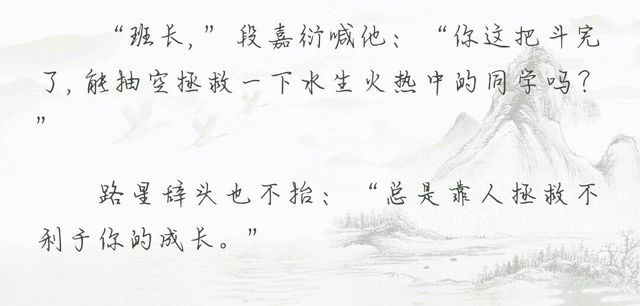 “班长,”段嘉衍喊他：“你这把斗完
了,能抽空拯救一下水生火热中的同学吗？
”
路星辞头也不抬：“总是靠人拯救不
利于你的成长。”